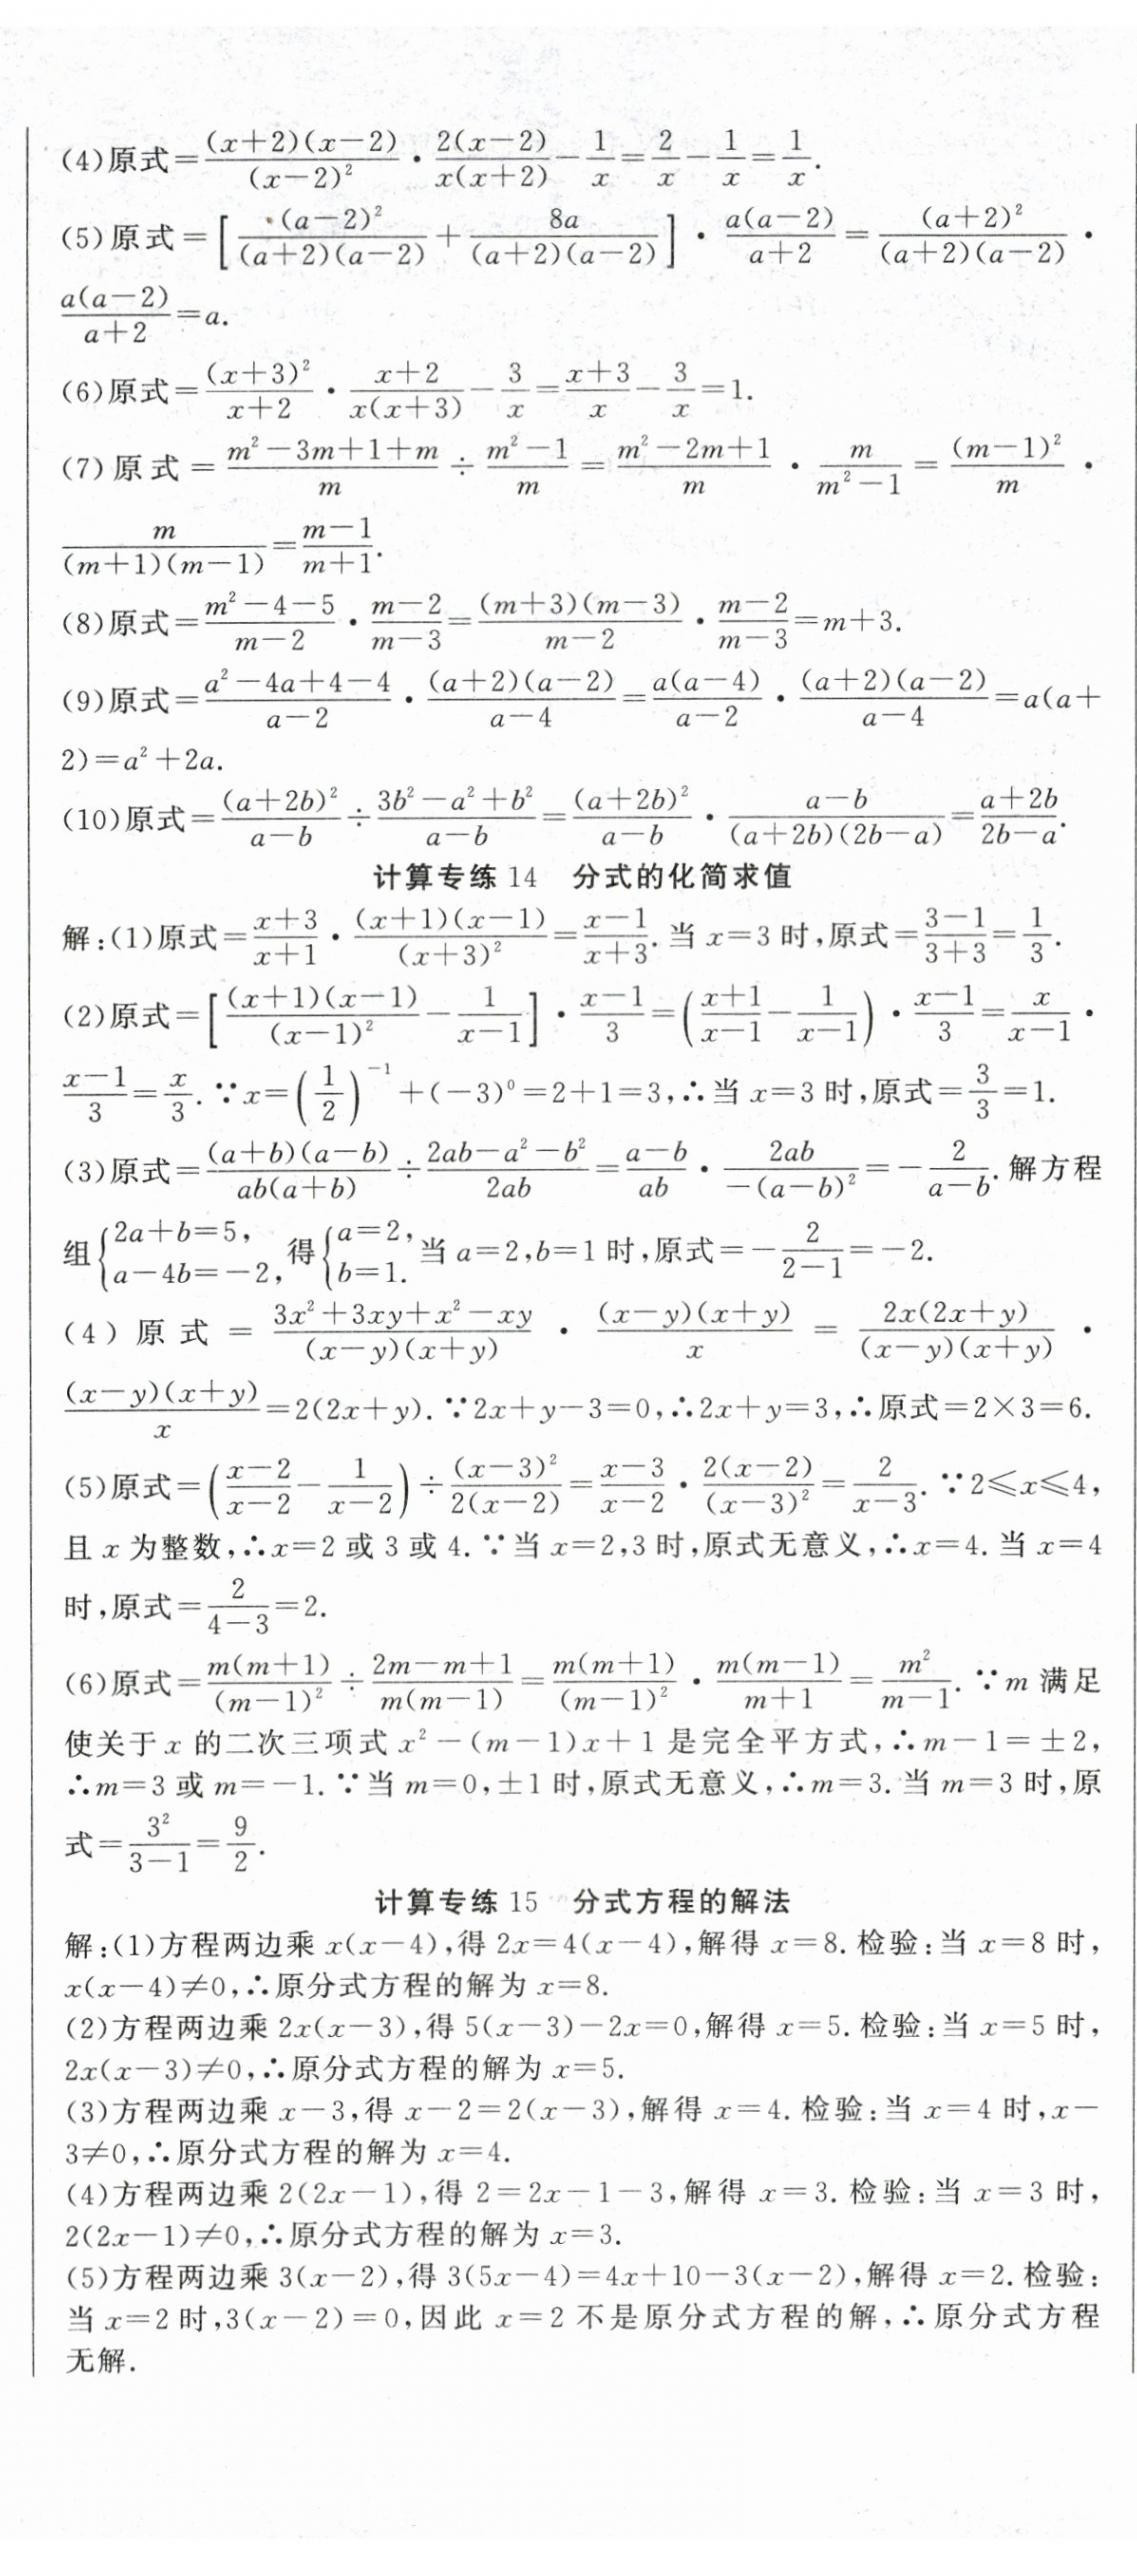 (4)原式=\frac{(x+2)(x-2)}{(x-2)^2}·\frac{2(x-2)}{x(x+2)}-\frac{1}{x}=\frac{2}{x}-\frac{1}{x}=\frac{1}{x}.
(5)原式=[\frac{(a-2)^2}{(a+2)(a-2)}+\frac{8a}{(a+2)(a-2)}]·\frac{a(a-2)}{a+2}=\frac{(a+2)^2}{(a+2)(a-2)}·
\frac{a(a-2)}{a+2}=a.
(6)原式=\frac{(x+3)^2}{x+2}·\frac{x+2}{x(x+3)}-\frac{3}{x}=\frac{x+3}{x}-\frac{3}{x}=1.
(7)原式=\frac{m^2-3m+1+m}{m}÷\frac{m^2-1}{m}=\frac{m^2-2m+1}{m}·\frac{m}{m^2-1}=\frac{(m-1)^2}{m}·
\frac{m}{(m+1)(m-1)}=\frac{m-1}{m+1}.
(8)原式=\frac{m^2-4-5}{m-2}·\frac{m-2}{m-3}=\frac{(m+3)(m-3)}{m-2}·\frac{m-2}{m-3}=m+3.
(9)原式=\frac{a^2-4a+4-4}{a-2}·\frac{(a+2)(a-2)}{a-4}=\frac{a(a-4)}{a-2}·\frac{(a+2)(a-2)}{a-4}=a(a+
2)=a^2+2a.
(10)原式=\frac{(a+2b)^2}{a-b}÷\frac{3b^2-a^2+b^2}{a-b}=\frac{(a+2b)^2}{a-b}·\frac{a-b}{(a+2b)(2b-a)}=\frac{a+2b}{2b-a}.
计算专练 14 分式的化简求值
解:(1)原式=\frac{x+3}{x+1}·\frac{(x+1)(x-1)}{(x+3)^2}=\frac{x-1}{x+3}.当 x=3 时,原式=\frac{3-1}{3+3}=\frac{1}{3}.
(2)原式=[\frac{(x+1)(x-1)}{(x-1)^2}-\frac{1}{x-1}]·\frac{x-1}{3}=(\frac{x+1}{x-1}-\frac{1}{x-1})·\frac{x-1}{3}=\frac{x}{x-1}·
\frac{x-1}{3}=\frac{x}{3}.∵x=(\frac{1}{2})^{-1}+(-3)^0=2+1=3,∴当 x=3 时,原式=\frac{3}{3}=1.
(3)原式=\frac{(a+b)(a-b)}{ab(a+b)}÷\frac{2ab-a^2-b^2}{2ab}=\frac{a-b}{ab}·\frac{2ab}{-(a-b)^2}=-\frac{2}{a-b}.解方程
组{2a+b=5, a-4b=-2, 得{a=2, b=1. 当 a=2,b=1 时,原式=-\frac{2}{2-1}=-2.
(4)原式=\frac{3x^2+3xy+x^2-xy}{(x-y)(x+y)}·\frac{(x-y)(x+y)}{x}=\frac{2x(2x+y)}{(x-y)(x+y)}·
\frac{(x-y)(x+y)}{x}=2(2x+y).∵2x+y-3=0,∴2x+y=3,∴原式=2×3=6.
(5)原式=(\frac{x-2}{x-2}-\frac{1}{x-2})÷\frac{(x-3)^2}{2(x-2)}=\frac{x-3}{x-2}·\frac{2(x-2)}{(x-3)^2}=\frac{2}{x-3}.∵2≤x≤4,
且 x 为整数,∴x=2 或 3 或 4.∵当 x=2,3 时,原式无意义,∴x=4.当 x=4
时,原式=\frac{2}{4-3}=2.
(6)原式=\frac{m(m+1)}{(m-1)^2}÷\frac{2m-m+1}{m(m-1)}=\frac{m(m+1)}{(m-1)^2}·\frac{m(m-1)}{m+1}=\frac{m^2}{m-1}.∵m 满足
使关于 x 的二次三项式 x^2-(m-1)x+1 是完全平方式,∴m-1=±2,
∴m=3 或 m=-1.∵当 m=0,±1 时,原式无意义,∴m=3.当 m=3 时,原
式=\frac{3^2}{3-1}=\frac{9}{2}.
计算专练 15 分式方程的解法
解:(1)方程两边乘 x(x-4),得 2x=4(x-4),解得 x=8.检验:当 x=8 时,
x(x-4)≠0,∴原分式方程的解为 x=8.
(2)方程两边乘 2x(x-3),得 5(x-3)-2x=0,解得 x=5.检验:当 x=5 时,
2x(x-3)≠0,∴原分式方程的解为 x=5.
(3)方程两边乘 x-3,得 x-2=2(x-3),解得 x=4.检验:当 x=4 时,x-
3≠0,∴原分式方程的解为 x=4.
(4)方程两边乘 2(2x-1),得 2=2x-1-3,解得 x=3.检验:当 x=3 时,
2(2x-1)≠0,∴原分式方程的解为 x=3.
(5)方程两边乘 3(x-2),得 3(5x-4)=4x+10-3(x-2),解得 x=2.检验:
当 x=2 时,3(x-2)=0,因此 x=2 不是原分式方程的解,∴原分式方程
无解.